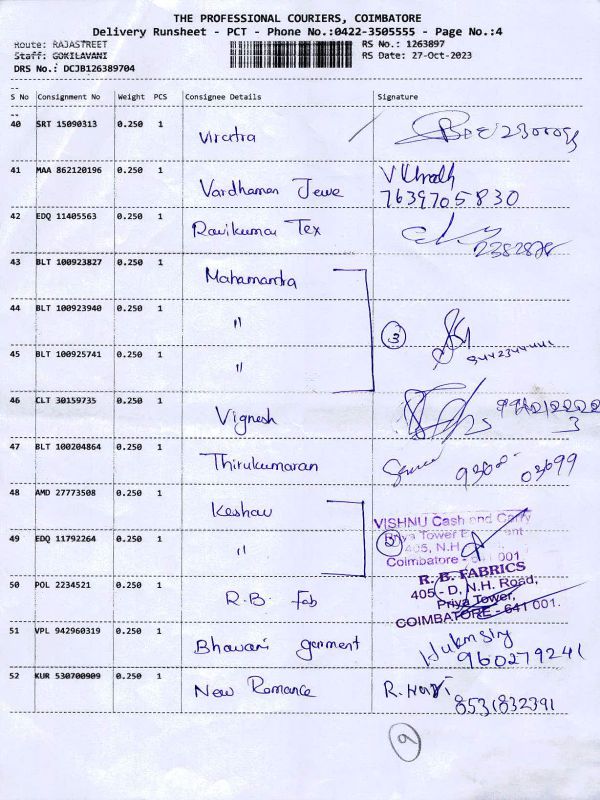 THE PROFESSIONAL COURIERS, COIMBATORE
Delivery Runsheet - PCT - Phone No.:0422-3505555 - Page No.:4
Route: RAJASTREET RS No.: 1263897
Staff: GOKILAVANI RS Date: 27-Oct-2023
DRS No.: DCJB126389704
S No Consignment No Weight PCS Consignee Details Signature
40 SRT 15090313 0.250 1 Viratra
41 MAA 862120196 0.250 1 Vardhaman Jewe
7639705830
42 EDQ 11405563 0.250 1 Ravikumar Tex
43 BLT 100923827 0.250 1 Mahamantra
44 BLT 100923940 0.250 1 "
3
45 BLT 100925741 0.250 1 "
46 CLT 30159735 0.250 1 Vignesh
47 BLT 100204864 0.250 1 Thirukumaran
48 AMD 27773508 0.250 1 Keshav
VISHNU Cash and Carry
Priya Tower
49 EDQ 11792264 0.250 1 " 2
405, N.H.
Coimbatore - 641 001
R. B. FABRICS
50 POL 2234521 0.250 1 R.B. Fab
405 - D, N.H. Road,
Priya Tower,
COIMBATORE - 641 001.
51 VPL 942960319 0.250 1 Bhavani garment
960279241
52 KUR 530700909 0.250 1 New Romance R. Hari
8531832391
9